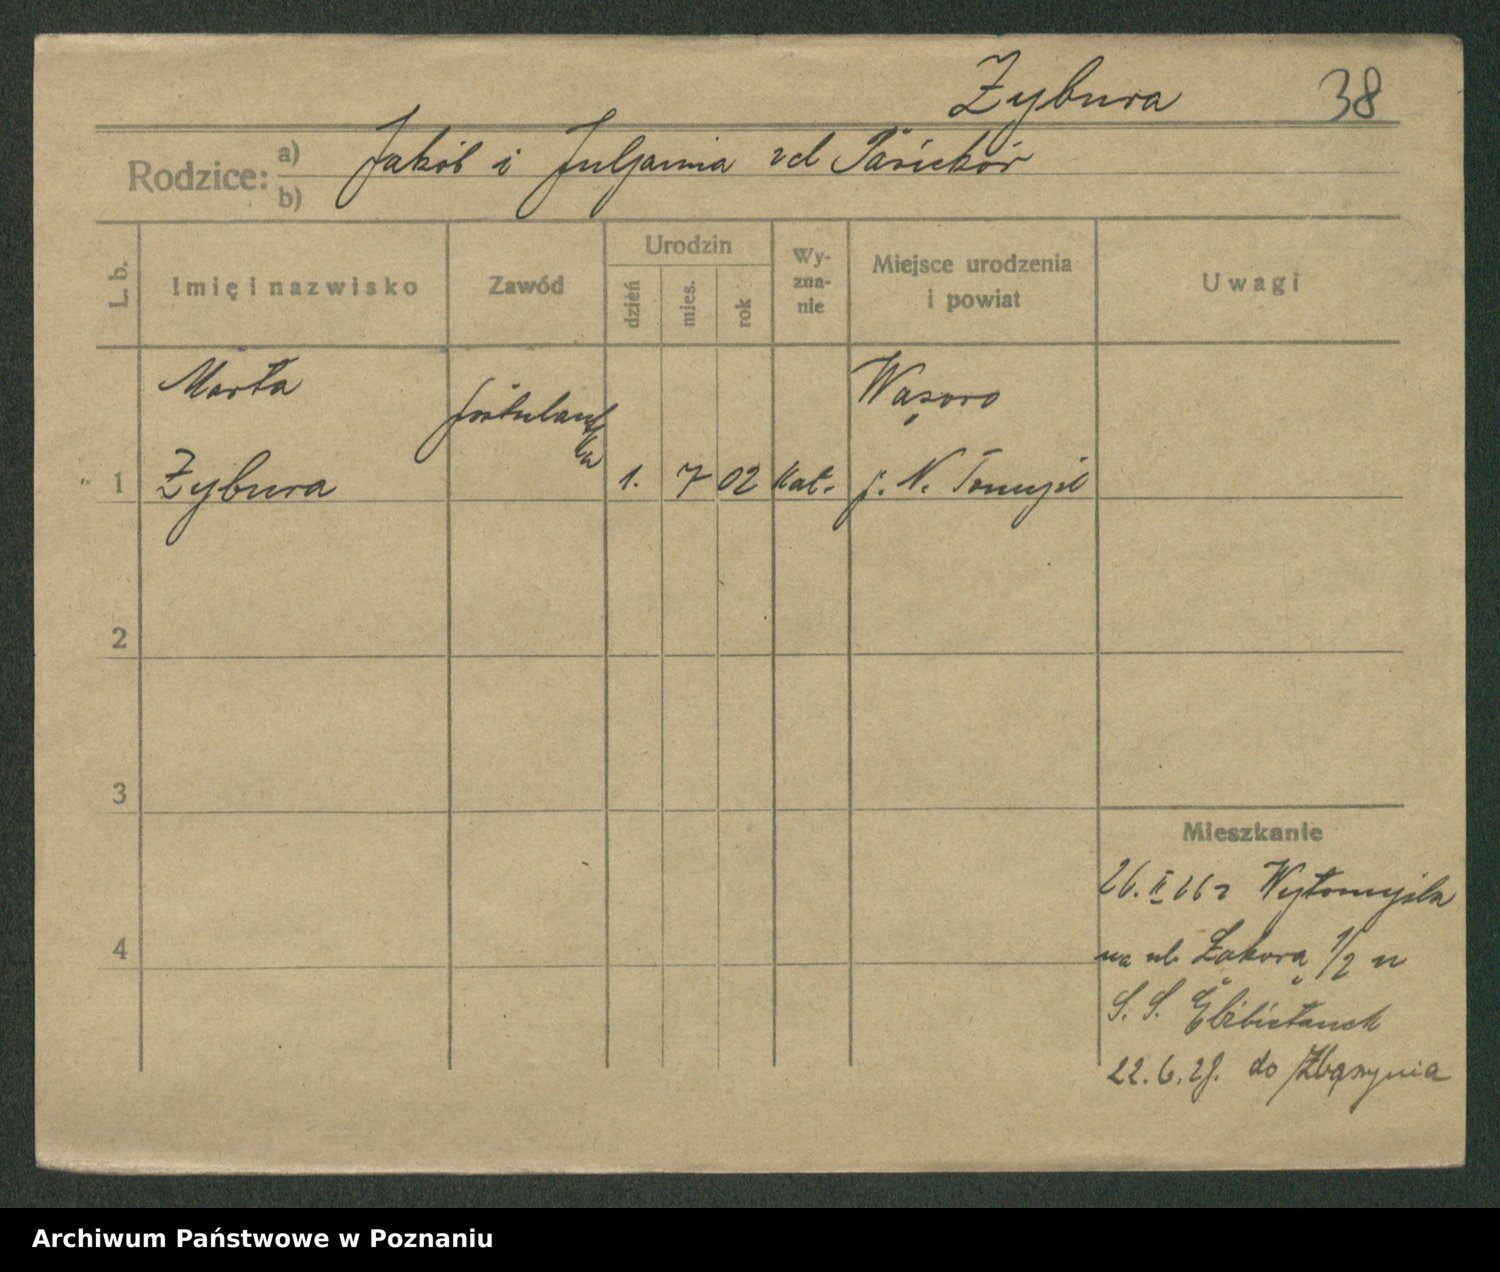 Żybura 38
Rodzice: a) Jakób i Juljanna zd
b)
L. b. Imię i nazwisko Zawód Urodzin dzień mies. rok Wyznanie Miejsce urodzenia i powiat Uwagi
Marta
1 Żybura 1. 7 02 kat. p. N. Tomyśl
2
3
Mieszkanie
26. II 26 z Wytomyśla
4 na ul. Łąkową 1/2 u
S. S. Elżbietanek
22. 6. 28. do Zbąszynia
Archiwum Państwowe w Poznaniu